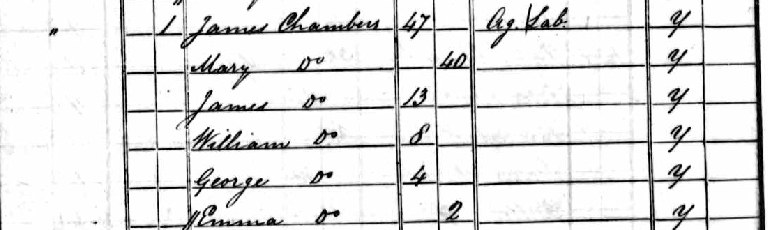 " 1 James Chambers 47 Ag Lab. y
Mary Do 40 y
James Do 13 y
William Do 8 y
George Do 4 y
Emma Do 2 y